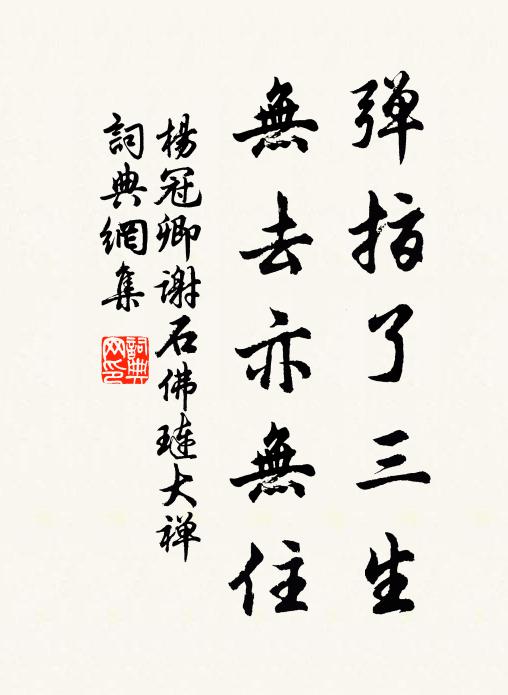 弹指了三生
無去亦無住
楊冠卿謝石佛璉大禅
詞典網集
詞典网印